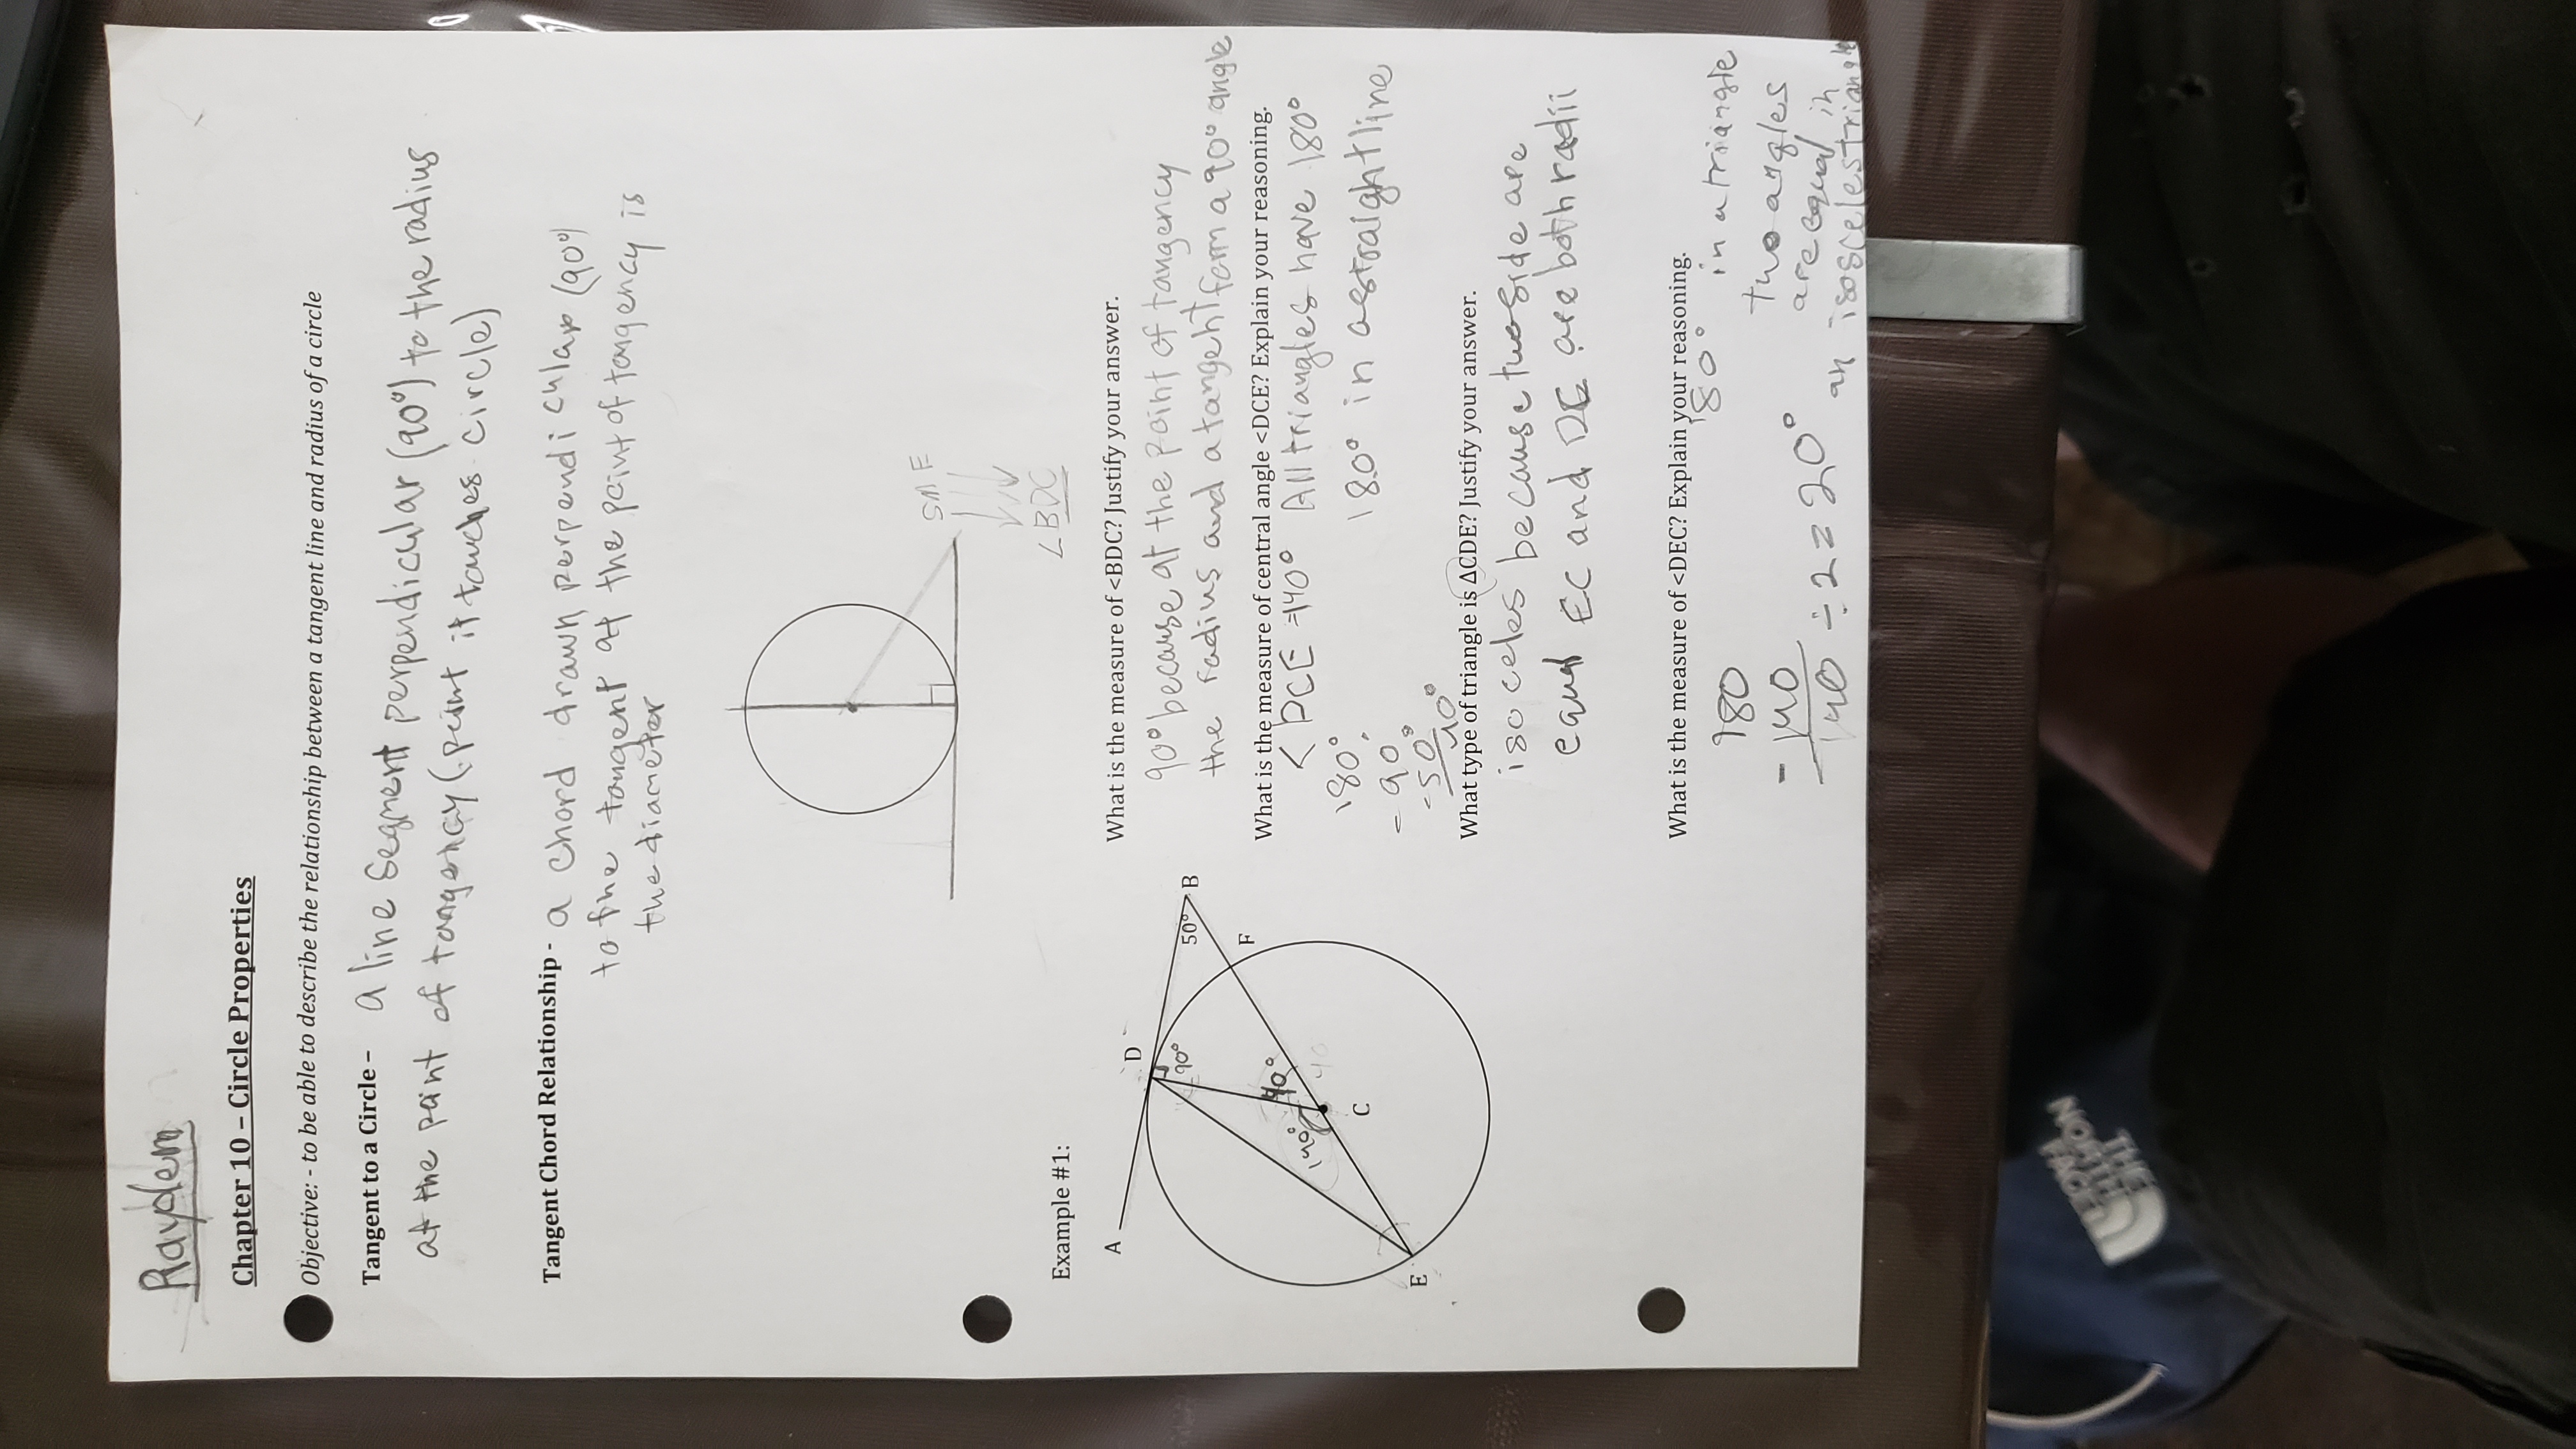 Rayden
Chapter 10 – Circle Properties
Objective: - to be able to describe the relationship between a tangent line and radius of a circle
Tangent to a Circle - a line segment perpendicular (90°) to the radius
at the point of tangency (point it touches circle)
Tangent Chord Relationship - a chord drawn perpendicular (90°)
to the tangent at the point of tangency is
the diameter
<BDC
Example #1:
A
D
B
50°
F
90°
40°
40
140°
C
E
What is the measure of <BDC? Justify your answer.
90° because at the point of tangency
the radius and a tangent form a 90° angle
What is the measure of central angle <DCE? Explain your reasoning.
<DCE =140° All triangles have 180°
180° 180° in a straight line
- 90°
- 50°
40°
What type of triangle is ΔCDE? Justify your answer.
isoceles because two side are
equal EC and DC are both radii
What is the measure of <DEC? Explain your reasoning.
180° in a triangle
180 two angles
- 140 are equal in
40 ÷ 2 = 20° an isosceles triangle
THE
NORTH
FACE